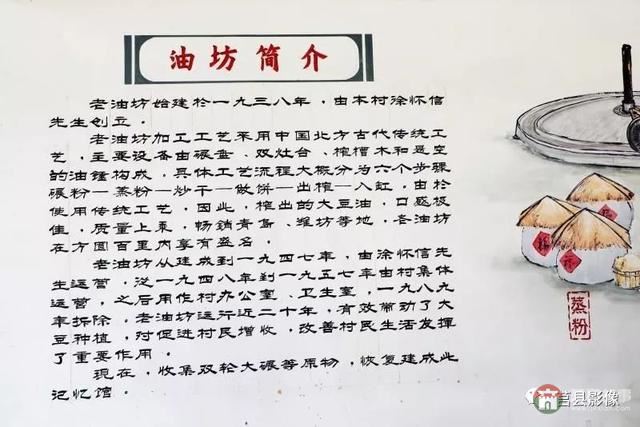 油坊简介
老油坊始建於一九三八年，由本村涂怀信
先生创立。
老油坊加工工艺采用中国北方古代传统工
艺，主要设备由碾盘、双灶台、榨槽木和悬空
的油锤构成，具体工艺流程大概分为六个步骤
碾粉一蒸粉一炒干一做饼一出榨一入缸。由於
使用传统工艺，因此，榨出的大豆油，口感极
佳，质量上乘，畅销青岛、潍坊等地，名油坊
在方圆百里内享有盛名。
老油坊从建成到一九四七年，由涂怀信先
生运营，从一九四八年到一九五七年由村集体
运营，之后用作村办公室、卫生室，一九八九
年拆除。老油坊运行近二十年，有效带动了大
豆种植，对促进村民增收，改善村民生活发挥
了重要作用。
现在，收集双轮大碾等原物，恢复建成此
记忆馆。
蒸粉
莒县影像